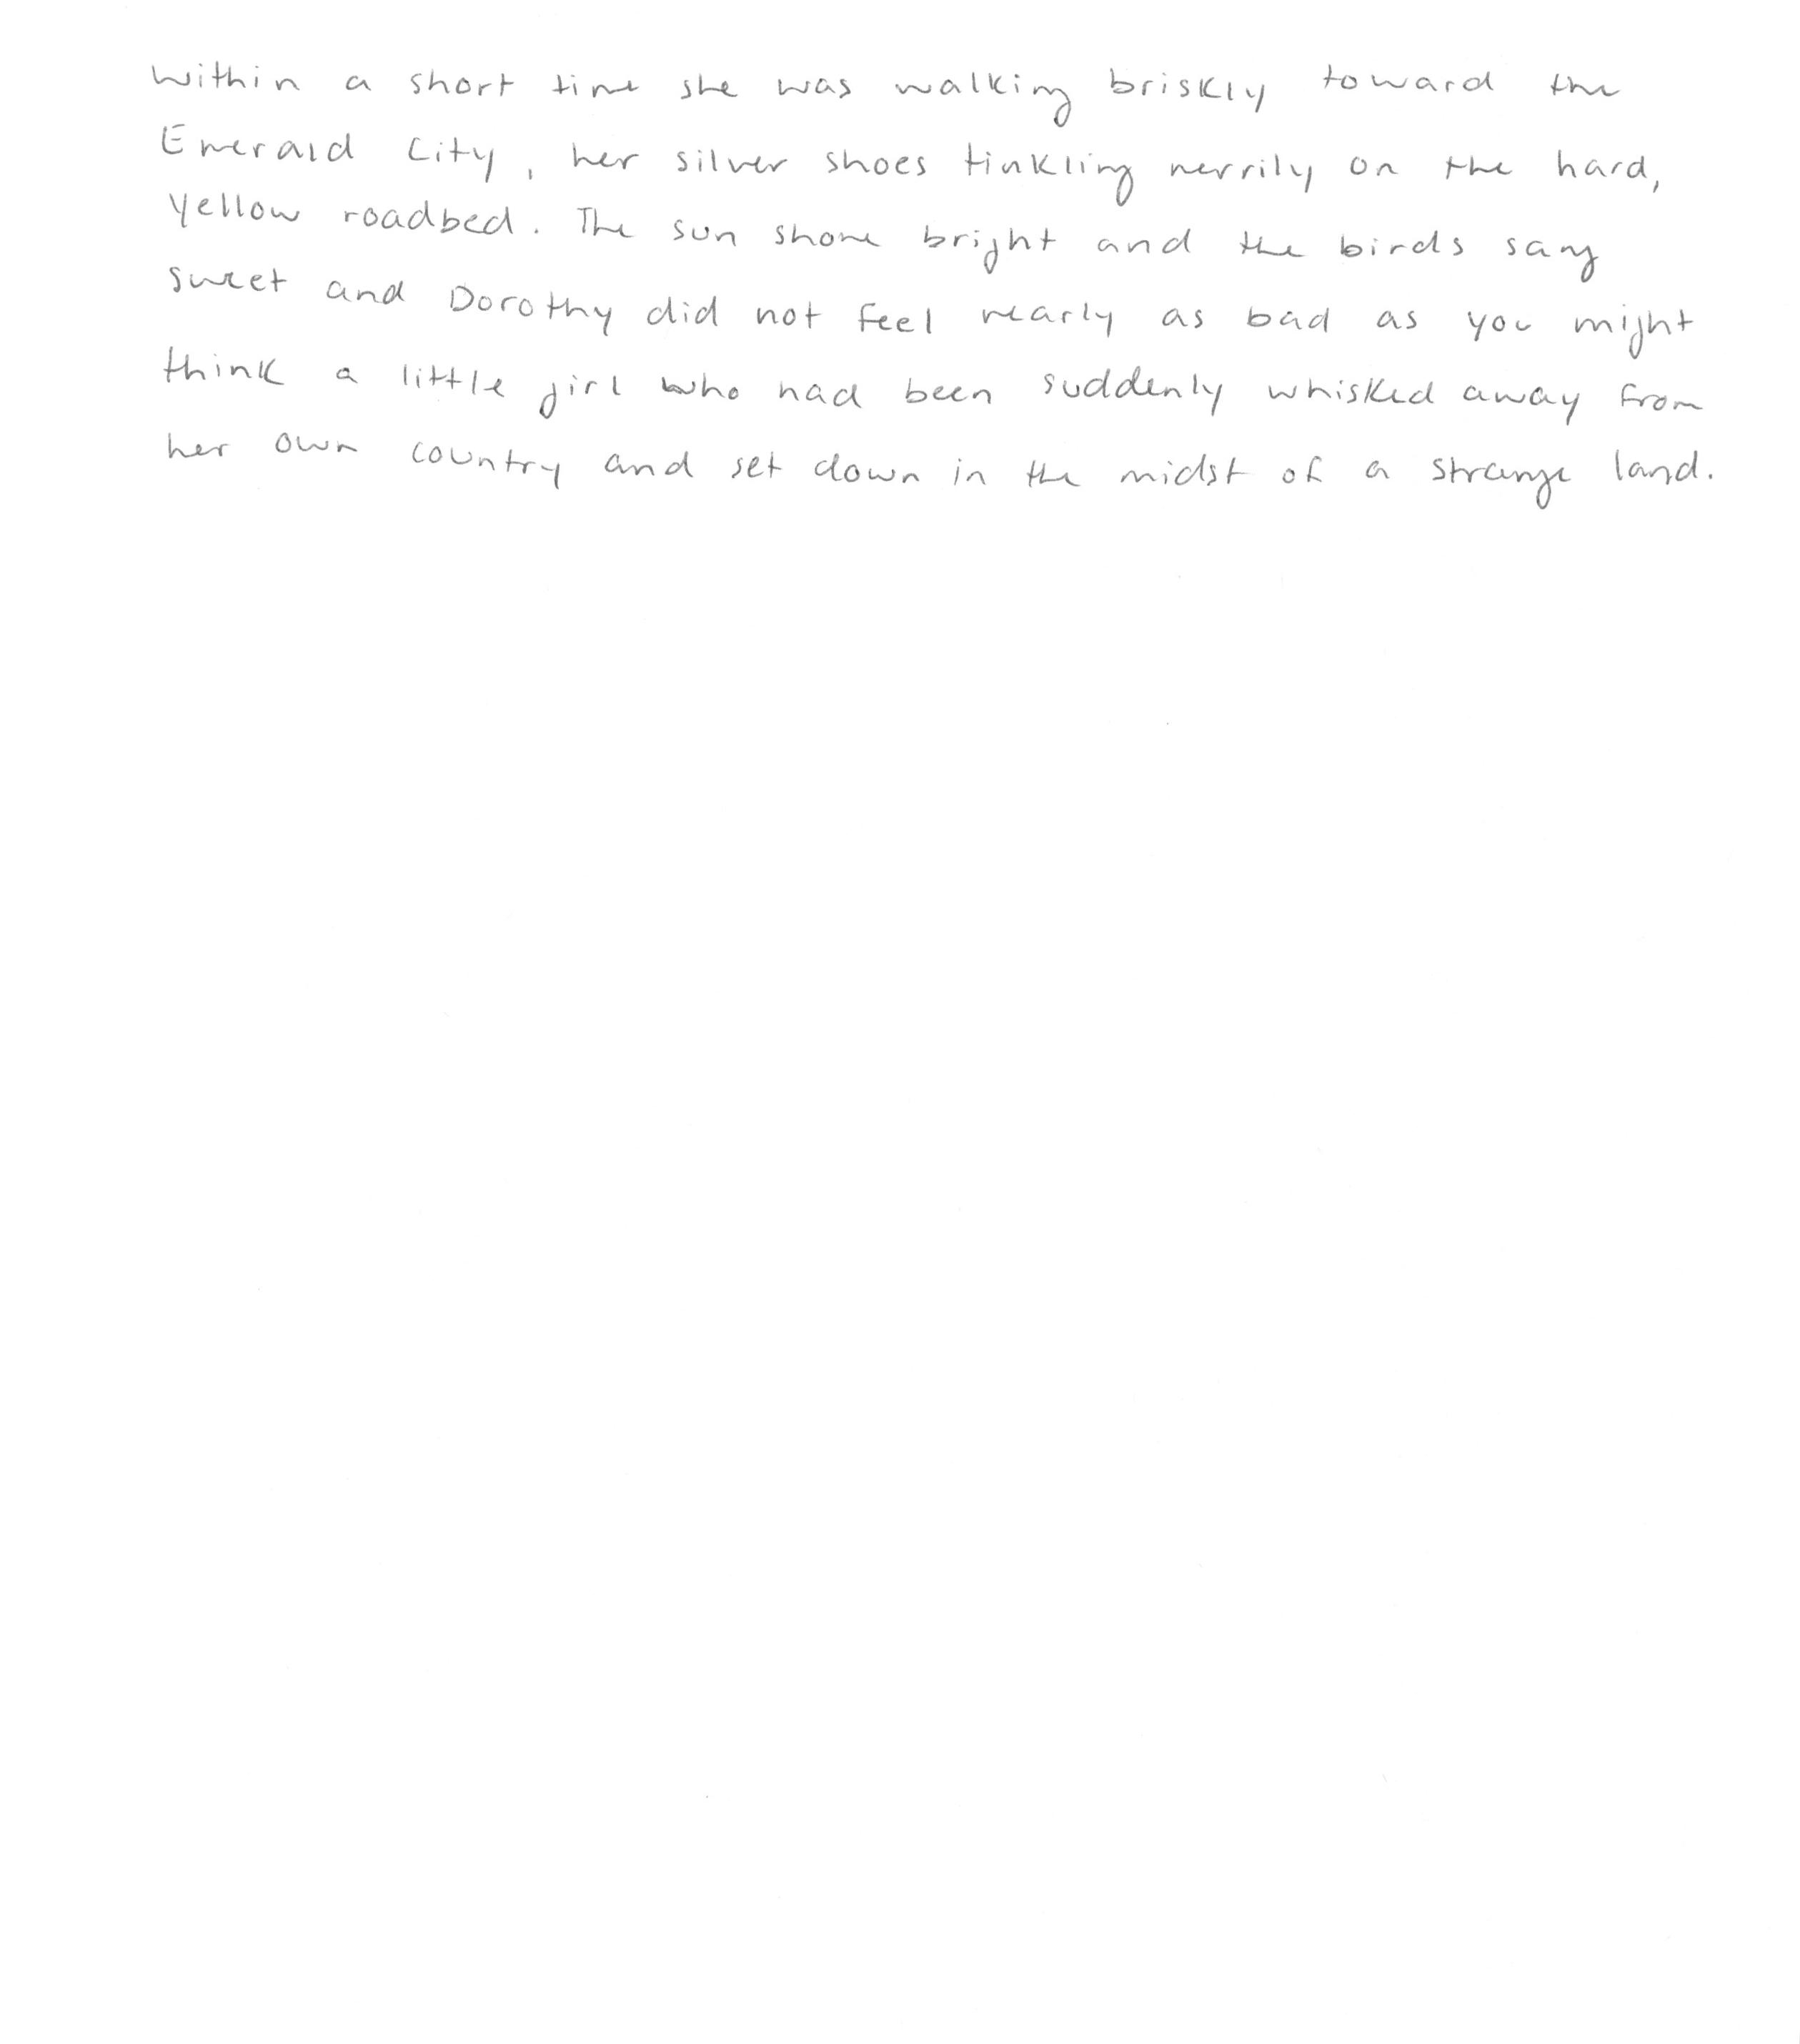 Within a short time she was walking briskly toward the
Emerald City, her silver shoes tinkling merrily on the hard,
yellow roadbed. The sun shone bright and the birds sang
sweet and Dorothy did not feel nearly as bad as you might
think a little girl who had been suddenly whisked away from
her own country and set down in the midst of a strange land.